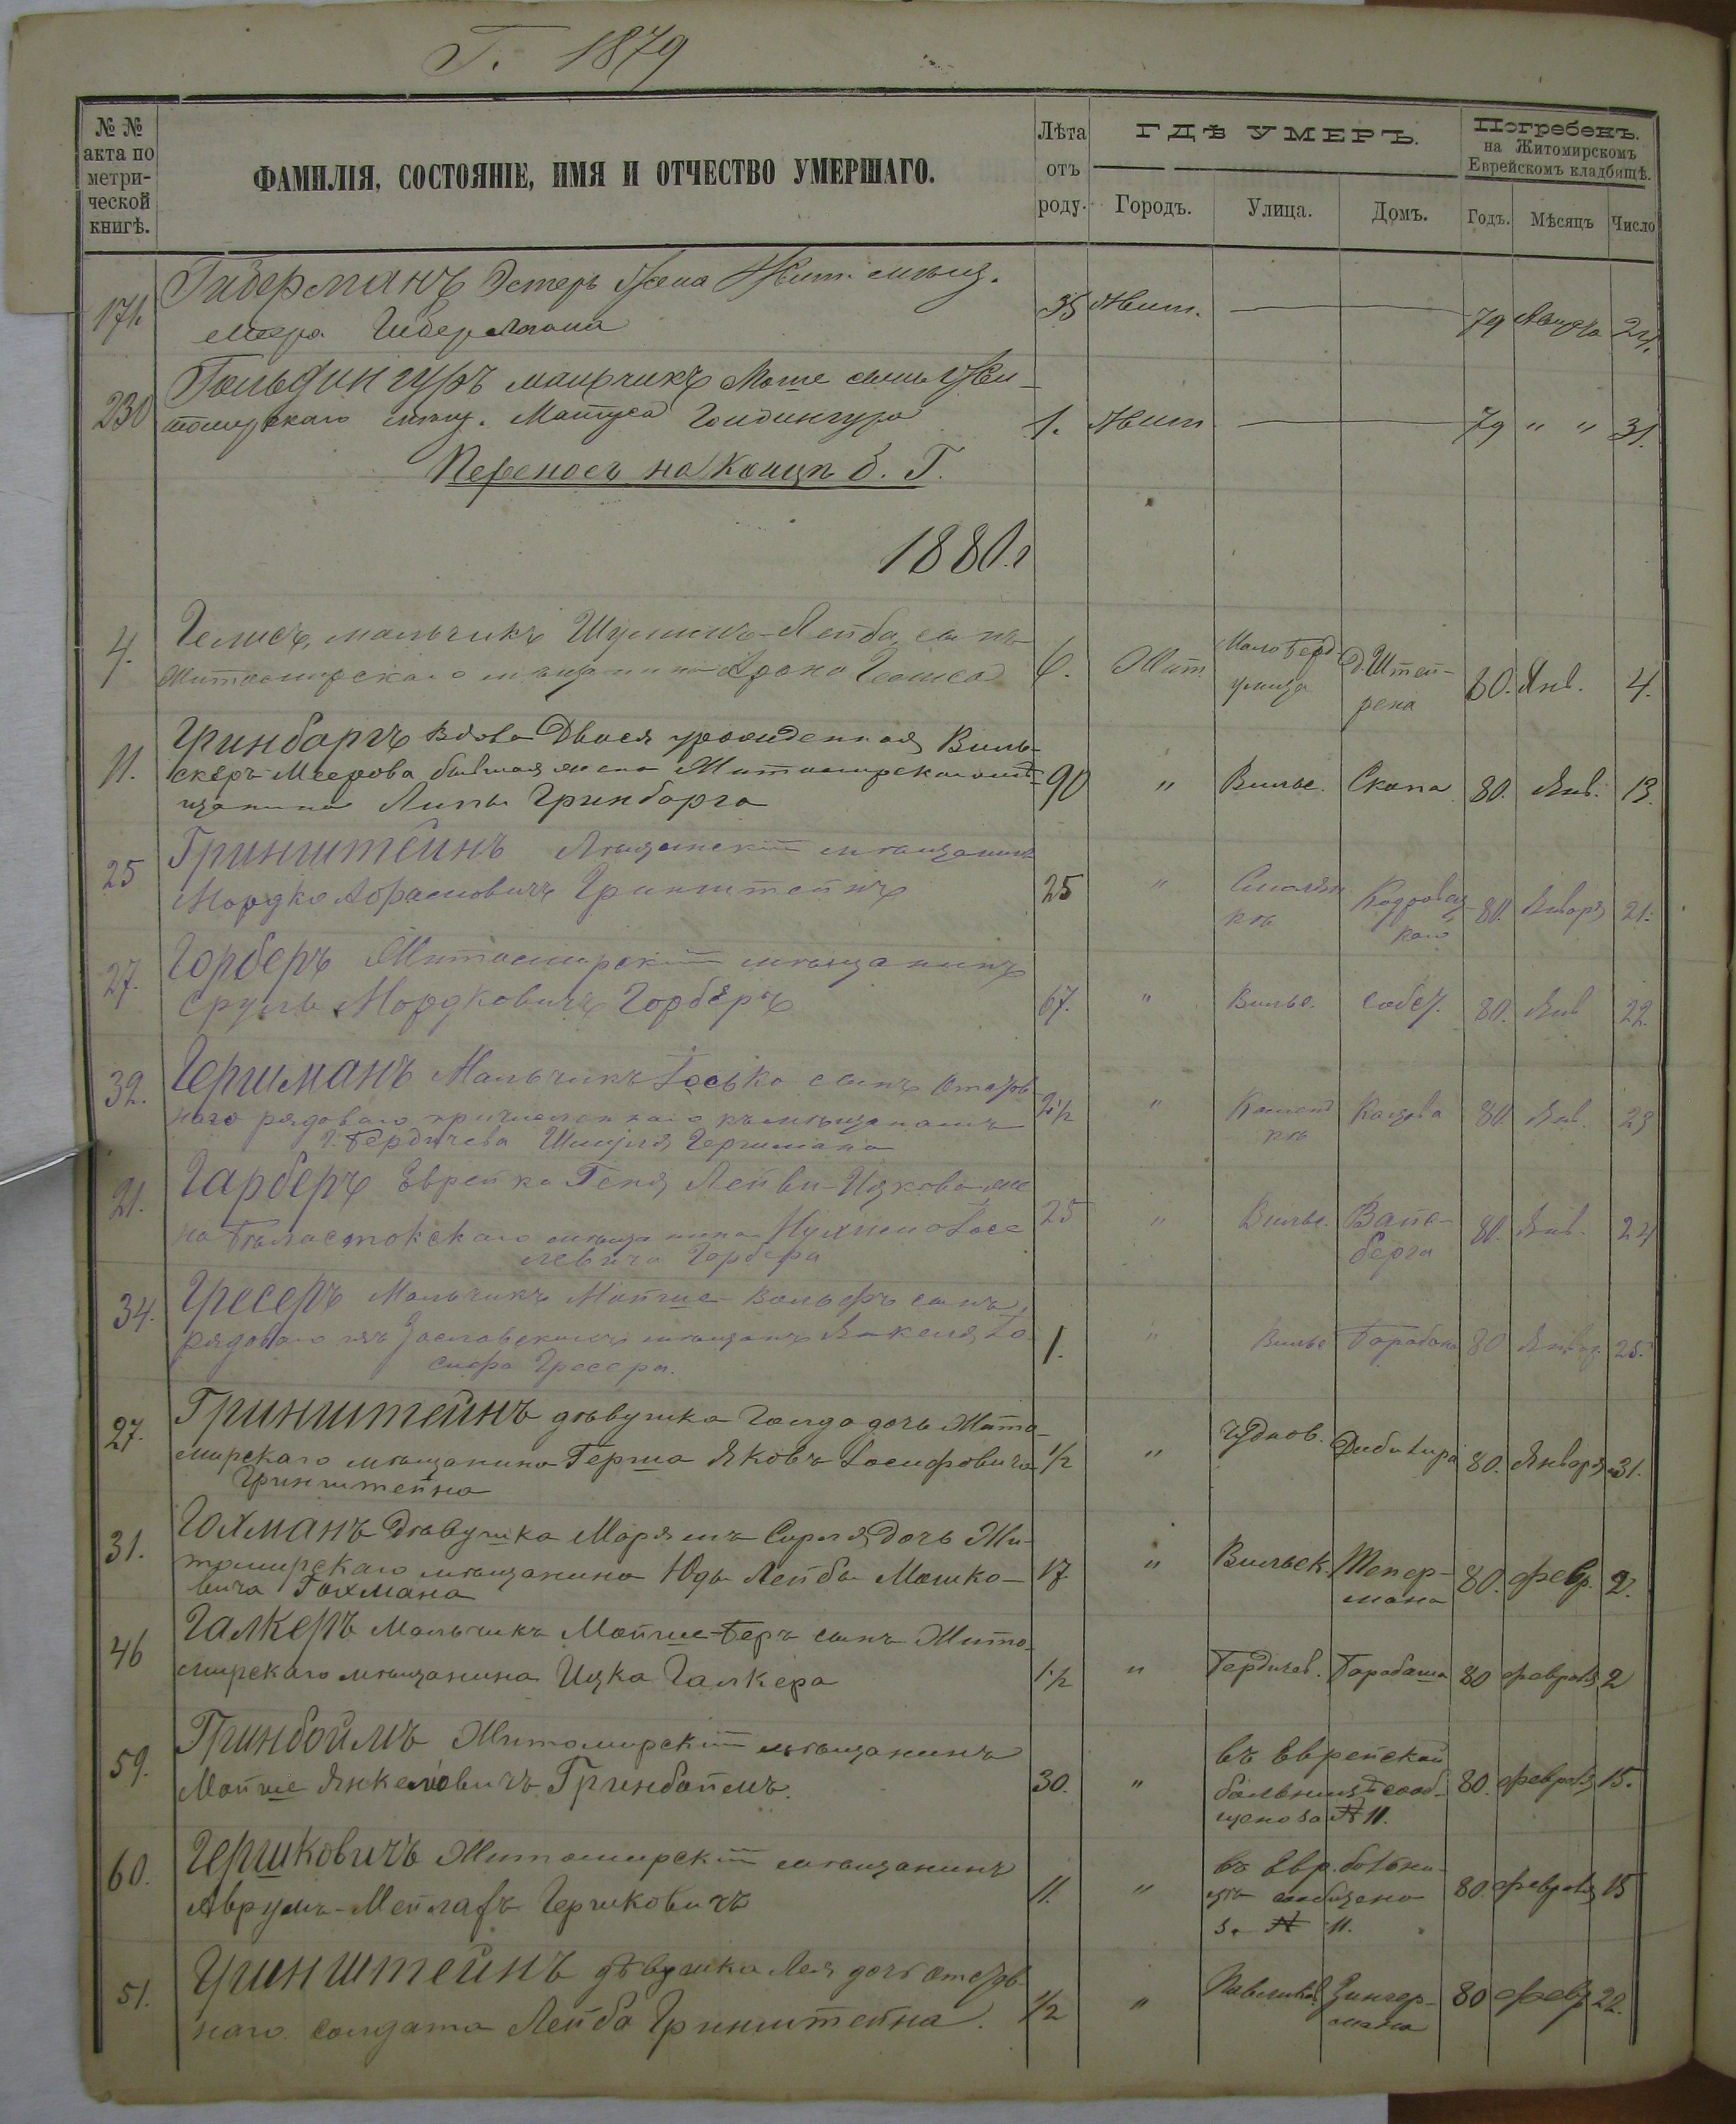 Г. 1879
№ №
акта по
метри-
ческой
книгѣ.
ФАМИЛІЯ, СОСТОЯНІЕ, ИМЯ И ОТЧЕСТВО УМЕРШАГО.
Лѣта
отъ
роду.
ГДѢ УМЕРЪ.
Городъ.
Улица.
Домъ.
Погребенъ.
на Житомирскомъ
Еврейскомъ кладбищѣ.
Годъ.
Мѣсяцъ
Число
174 Гиберманъ Эстеръ жена Жит. мѣщ.
Меера Гибермана 35 Жит. 79 Августа 24.
230 Гольдингуръ мальчикъ Моше сынъ Жи-
томирскаго мѣщ. Матуса Голдингура 1. Жит 79 " " 31.
Переносъ на концѣ б. Г.
1880.г
4. Гелисъ, мальчикъ Шулимъ-Лейба, сынъ
Житомирскаго мѣщанина Арона Гелиса 6. Жит. Мало Берд-
улица Д. Штей-
рена 80. Янв. 4.
11. Гринбаргъ Вдова Двося урожденная Виль-
скеръ Меерова бывшая жена Житомирскаго мѣ-
щанина Липы Гринбарга 90 " Вильс. Скапа 80. Янв. 13.
25 Гринштейнъ мѣщанинъ
Мордко Абрамовичъ Гринштейнъ 25 " 80. Января 21.
27. Горберъ Житомирскій мѣщанинъ
Сруль Мордковичъ Горберъ 67. " Вильс. собст. 80. Янв 22.
32. Гершманъ Мальчикъ Іосько сынъ отстав-
наго рядоваго причисленнаго къ мѣщанамъ
г. Бердичева Шмуля Гершмана 2½ " 80. Янв. 23
21. Гарберъ Еврейка Геня Лейви-Ицкова же-
на Бѣлостокскаго мѣщанина Нухима Іосе
левича Горбера 25 " Вильс. Вайс-
берга 80. Янв. 24
34. Гресеръ Мальчикъ Мойше-Вольфъ сынъ,
рядоваго изъ Заславскихъ мѣщанъ Янкеля Іо
сифа Гресера. 1. " Вильс Барабана 80 Январ. 25.
27. Гринштейнъ дѣвушка Голда дочь Жито-
мирскаго мѣщанина Герша Яковъ Іосифовича
Гринштейна ½ " Чуднов. 80. Января 31.
31. Гохманъ Дѣвушка Марямъ Сурля Дочь Жи-
томирскаго мѣщанина Юды Лейбы Мошко-
вича Гохмана 17 " Вильск. Тепер-
мана 80. февр. 2.
46 Галкеръ Мальчикъ Мойше-Беръ сынъ Жито-
мирскаго мѣщанина Ицка Галкера 1½ " Бердичев. Барабаша 80 февраля 2
59. Гринбоймъ Житомирскій мѣщанинъ
Мойше Янкелевичъ Гринбоймъ. 30. " въ Еврейской
больницѣ сооб-
щено за № 11. 80. февраля 15.
60. Гершковичъ Житомирскій мѣщанинъ
Аврумъ-Мейлахъ Гершковичъ 11. " въ Евр. больни-
цѣ сообщено
з. № 11. 80. февраля 15
51. Гринштейнъ дѣвушка Лея дочь отстав-
наго солдата Лейба Гринштейна. ½ " Павликов. Зингер-
мана 80 февр 22.